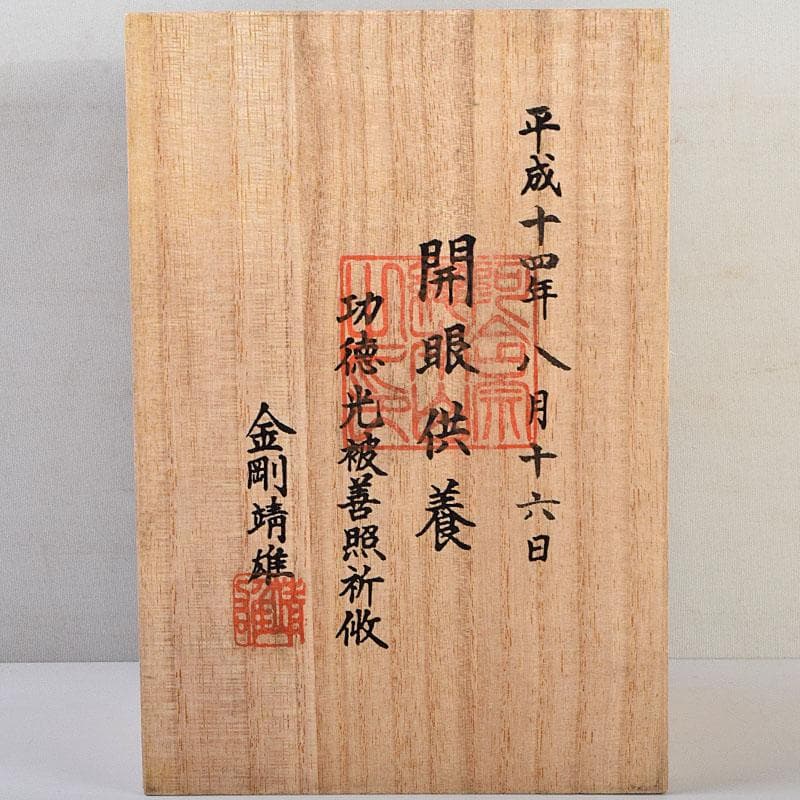 平成十四年八月十六日
開眼供養
功徳光被善照祈攸
金剛靖雄
靖雄